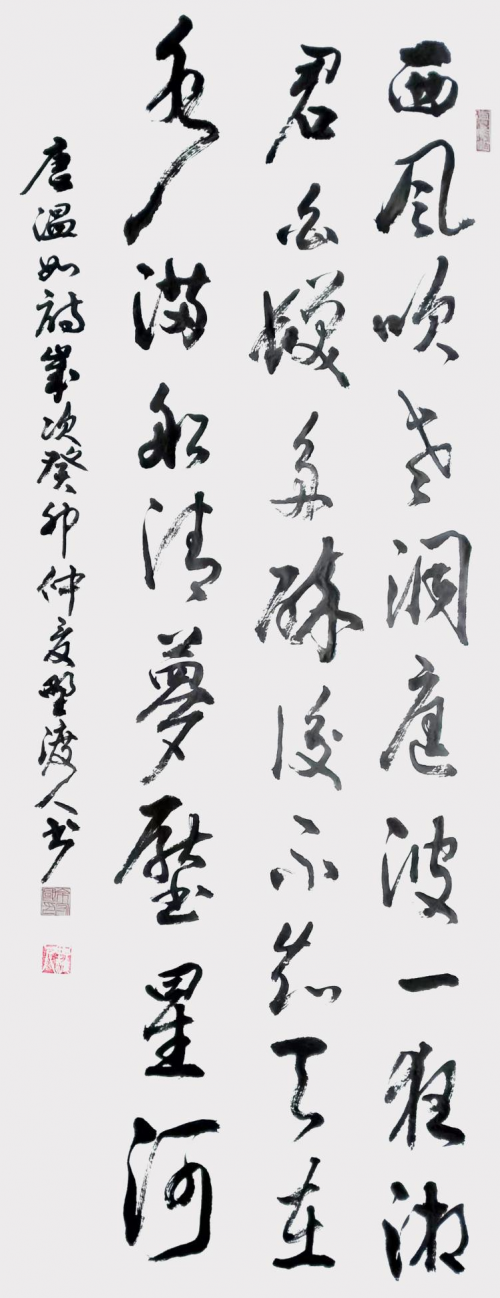 西風吹老洞庭波一夜湘
君白髮多醉後不知天在
水滿船清夢壓星河
唐溫如詩歲次癸卯仲夏野渡人書